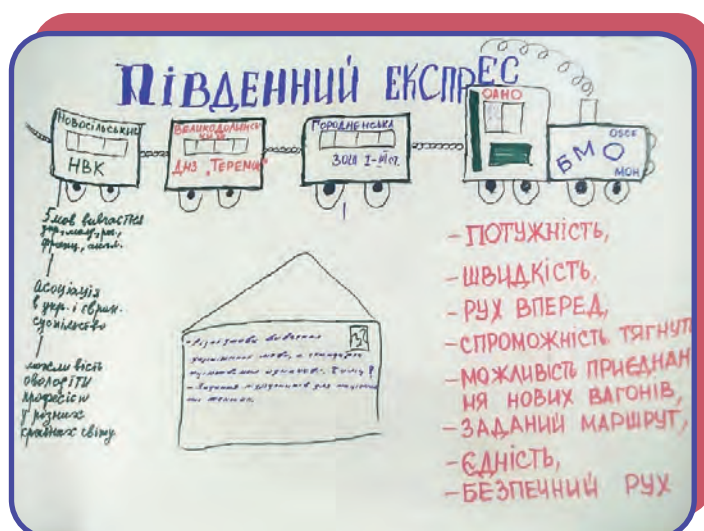 ПІВДЕННИЙ ЕКСПРЕС
НОВОСІЛЬСЬКИЙ
НВК
ВЕЛИКОДОЛИНСЬ
КИЙ
ДНЗ „ТЕРЕМОК"
ГОРОДНЕНСЬКА
ЗОШ І-ІІІ ст.
ОАНО
БМО
OSCE
МОН
5 мов вивчається
укр., рос.,
франц., англ.
асоціація
в укр. і європ.
суспільство
можливість
оволодіти
професією
у різних
країнах світу
вивчення
української мови, а стандарти
однакові. Чому?
підручників для
- ПОТУЖНІСТЬ,
- ШВИДКІСТЬ,
- РУХ ВПЕРЕД,
- СПРОМОЖНІСТЬ ТЯГНУТИ
- МОЖЛИВІСТЬ ПРИЄДНАН
НЯ НОВИХ ВАГОНІВ,
- ЗАДАНИЙ МАРШРУТ,
- ЄДНІСТЬ,
- БЕЗПЕЧНИЙ РУХ